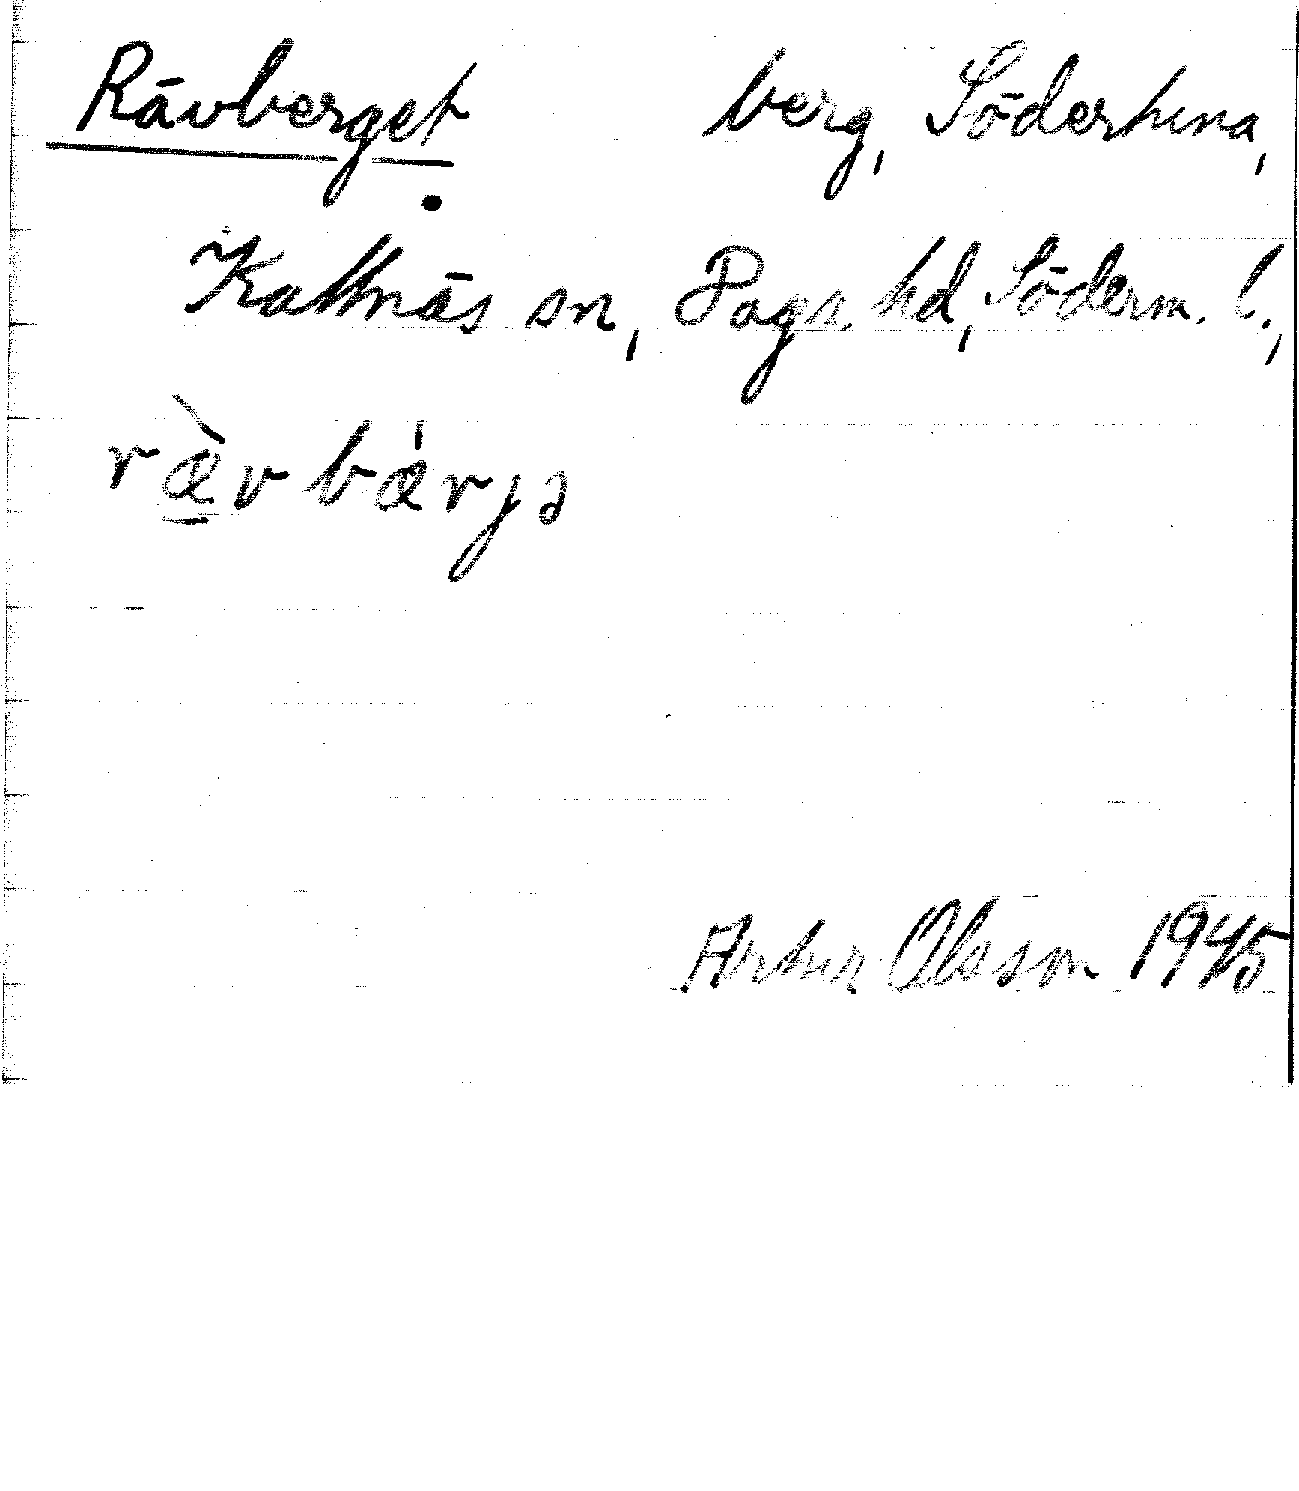 Rävberget berg, Södertuna,
Kattnäs sn, Daga hd, Söderm. l.,
ræ̀vbæ̀rjə
Artur Olsson 1945